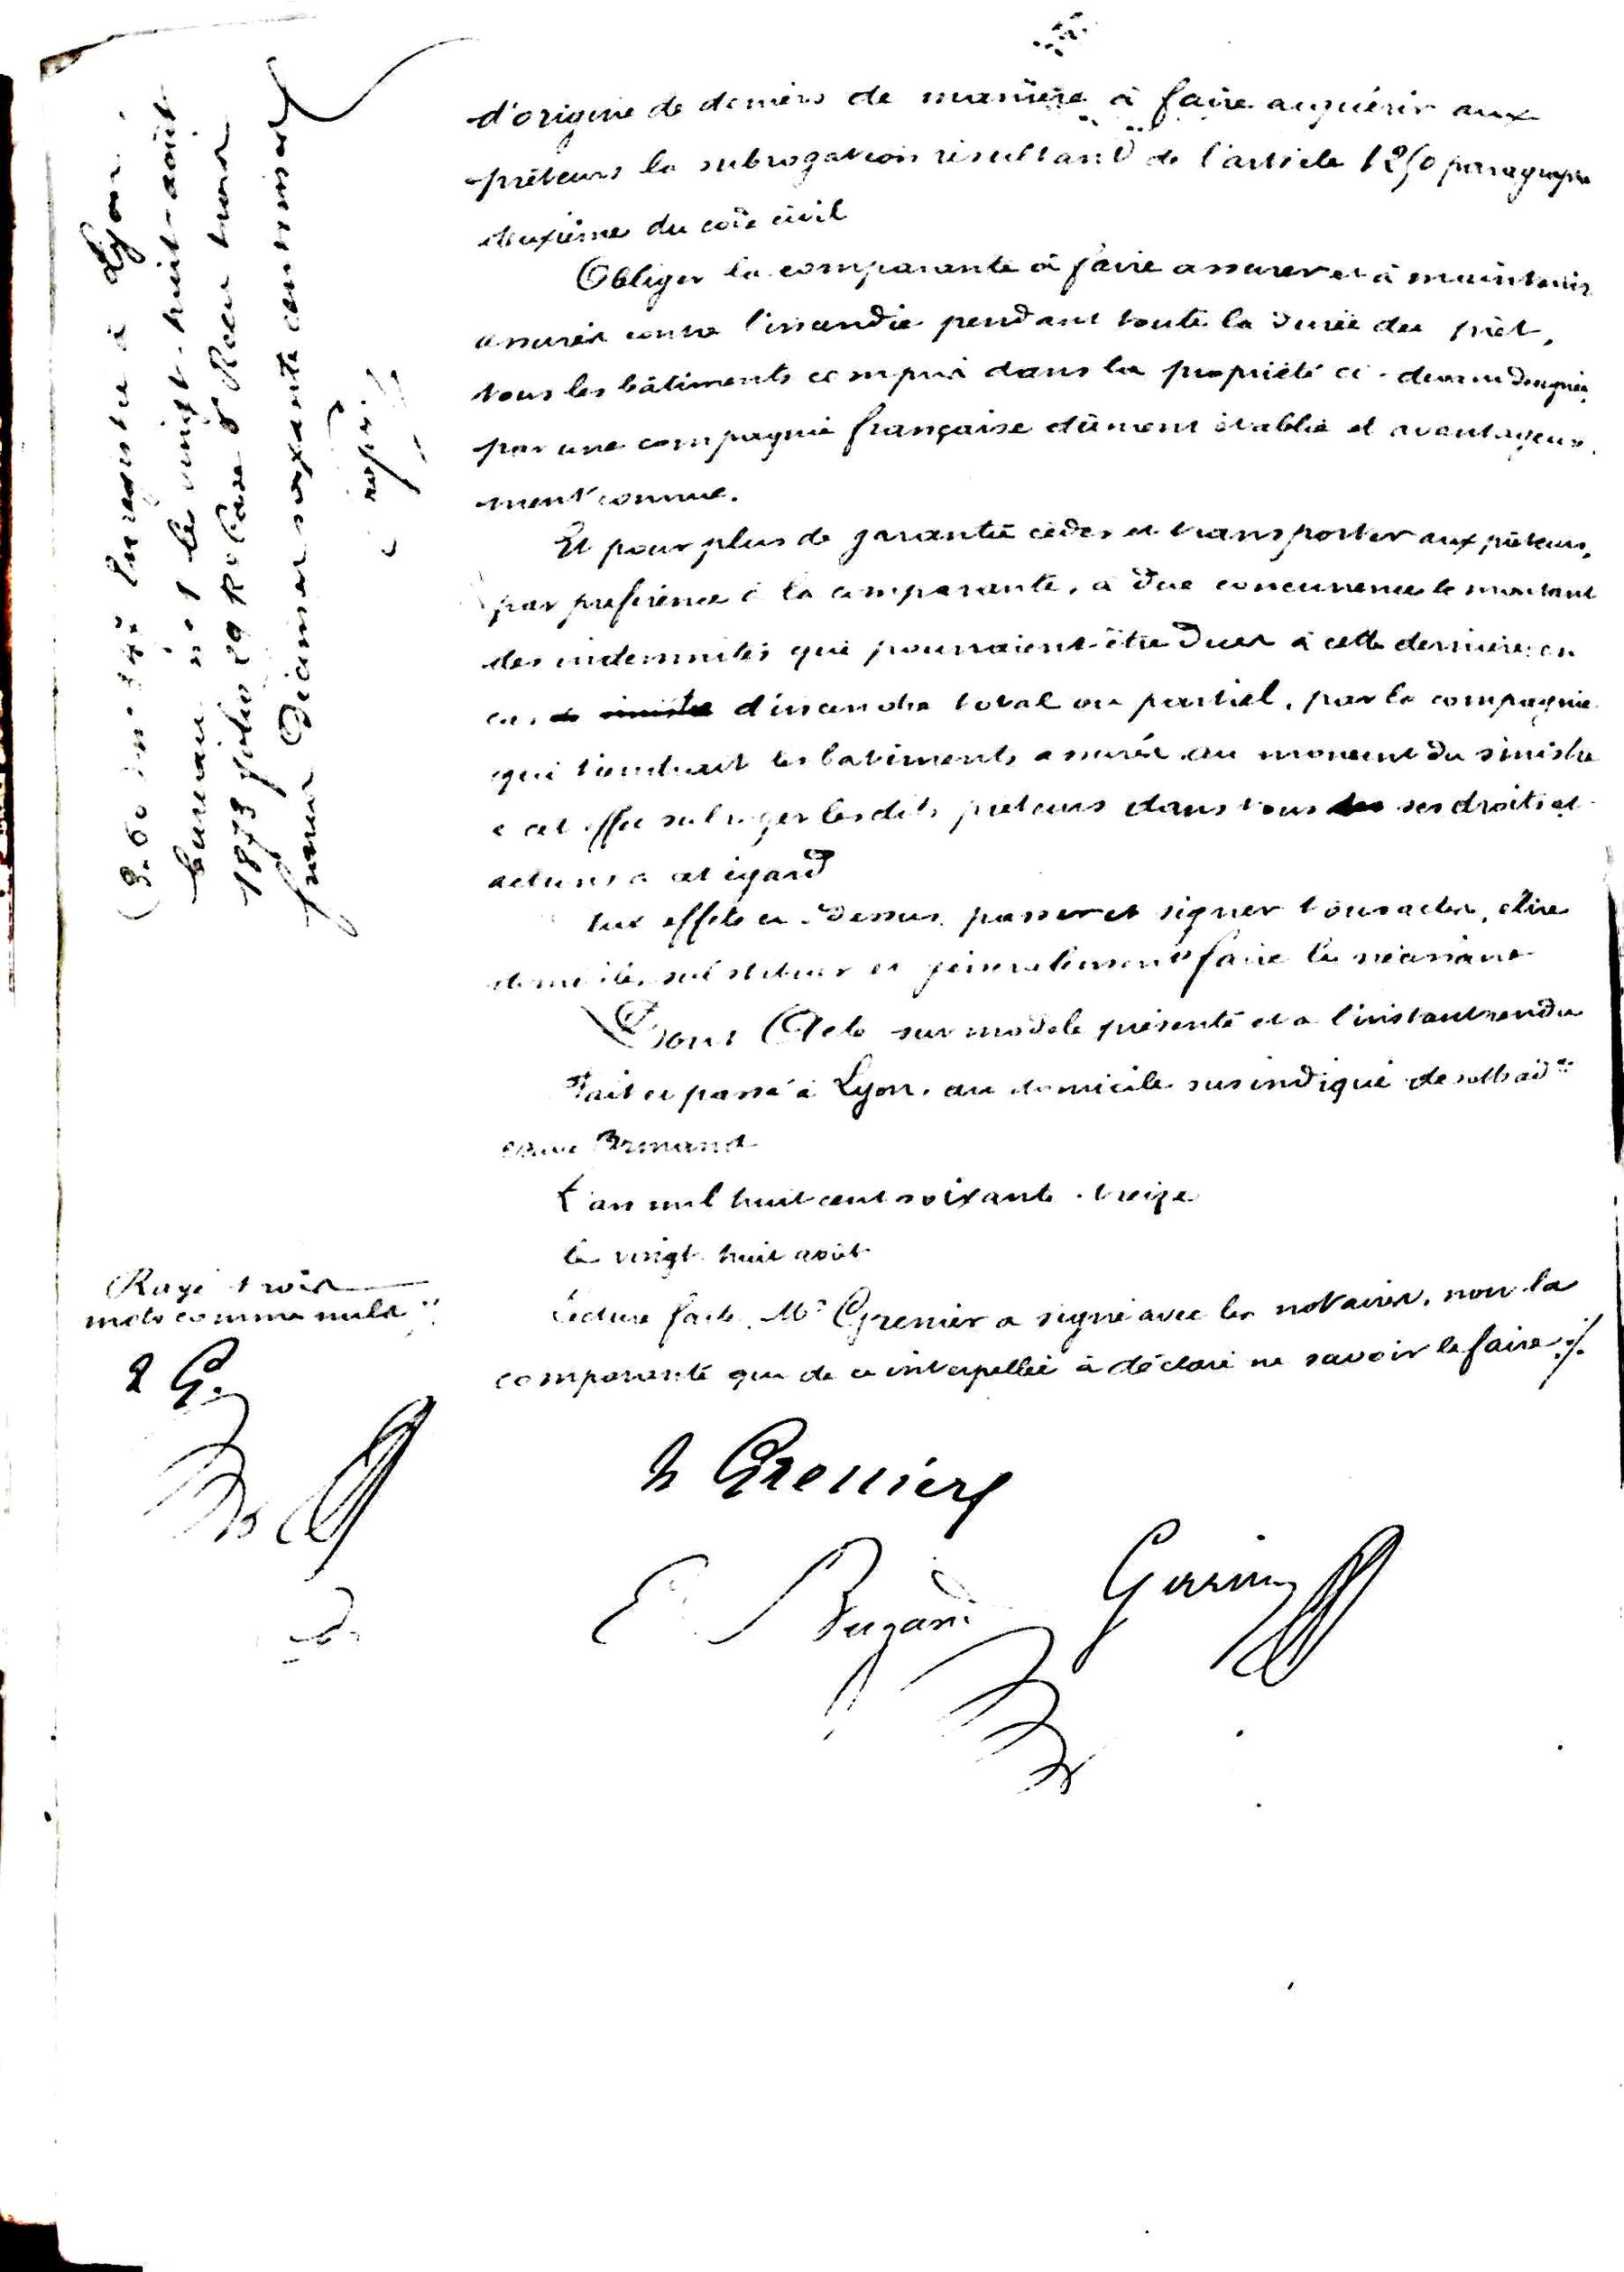 d'origine de deniers de manière à faire acquérir aux
prêteurs la subrogation résultant de l'article 1250 paragraphe
deuxième du code civil
Obliger la comparante à faire assurer et à maintenir
assurés contre l'incendie pendant toute la durée du prêt,
tous les bâtiments compris dans la propriété ci-devant désignée
par une compagnie française dûment établie et avantageuse
ment connue.
Et pour plus de garantie céder et transporter aux prêteurs,
par préférence à la comparante, à due concurrence le montant
des indemnités qui pourraient être dues à cette dernière en
cas de sinistre d'incendie total ou partiel, par la compagnie
qui tiendrait les batiments assurés au moment du sinistre
à cet effet subroger lesdits preteurs dans tous les ses droits et
actions à cet égard
Aux effets ci-dessus passer et signer tous actes, élire
domicile, substituer et généralement faire le nécessaire
Dont Acte sur modèle présenté et à l'instant rendu
Fait et passé à Lyon, au domicile susindiqué de
veuve
L'an mil huit cent soixante-treize
le vingt huit août
Lecture faite, Mr Grenier a signé avec les notaires, non la
comparante qui de ce interpellée à déclaré ne savoir le faire ./.
Rayé trois
mots comme nuls
Grenier
E
Enregistré à Lyon
bureau n° 1 le vingt-huit août
1873 folio 29 Ro Case 8 Reçu trois
francs Décimes soixante centimes